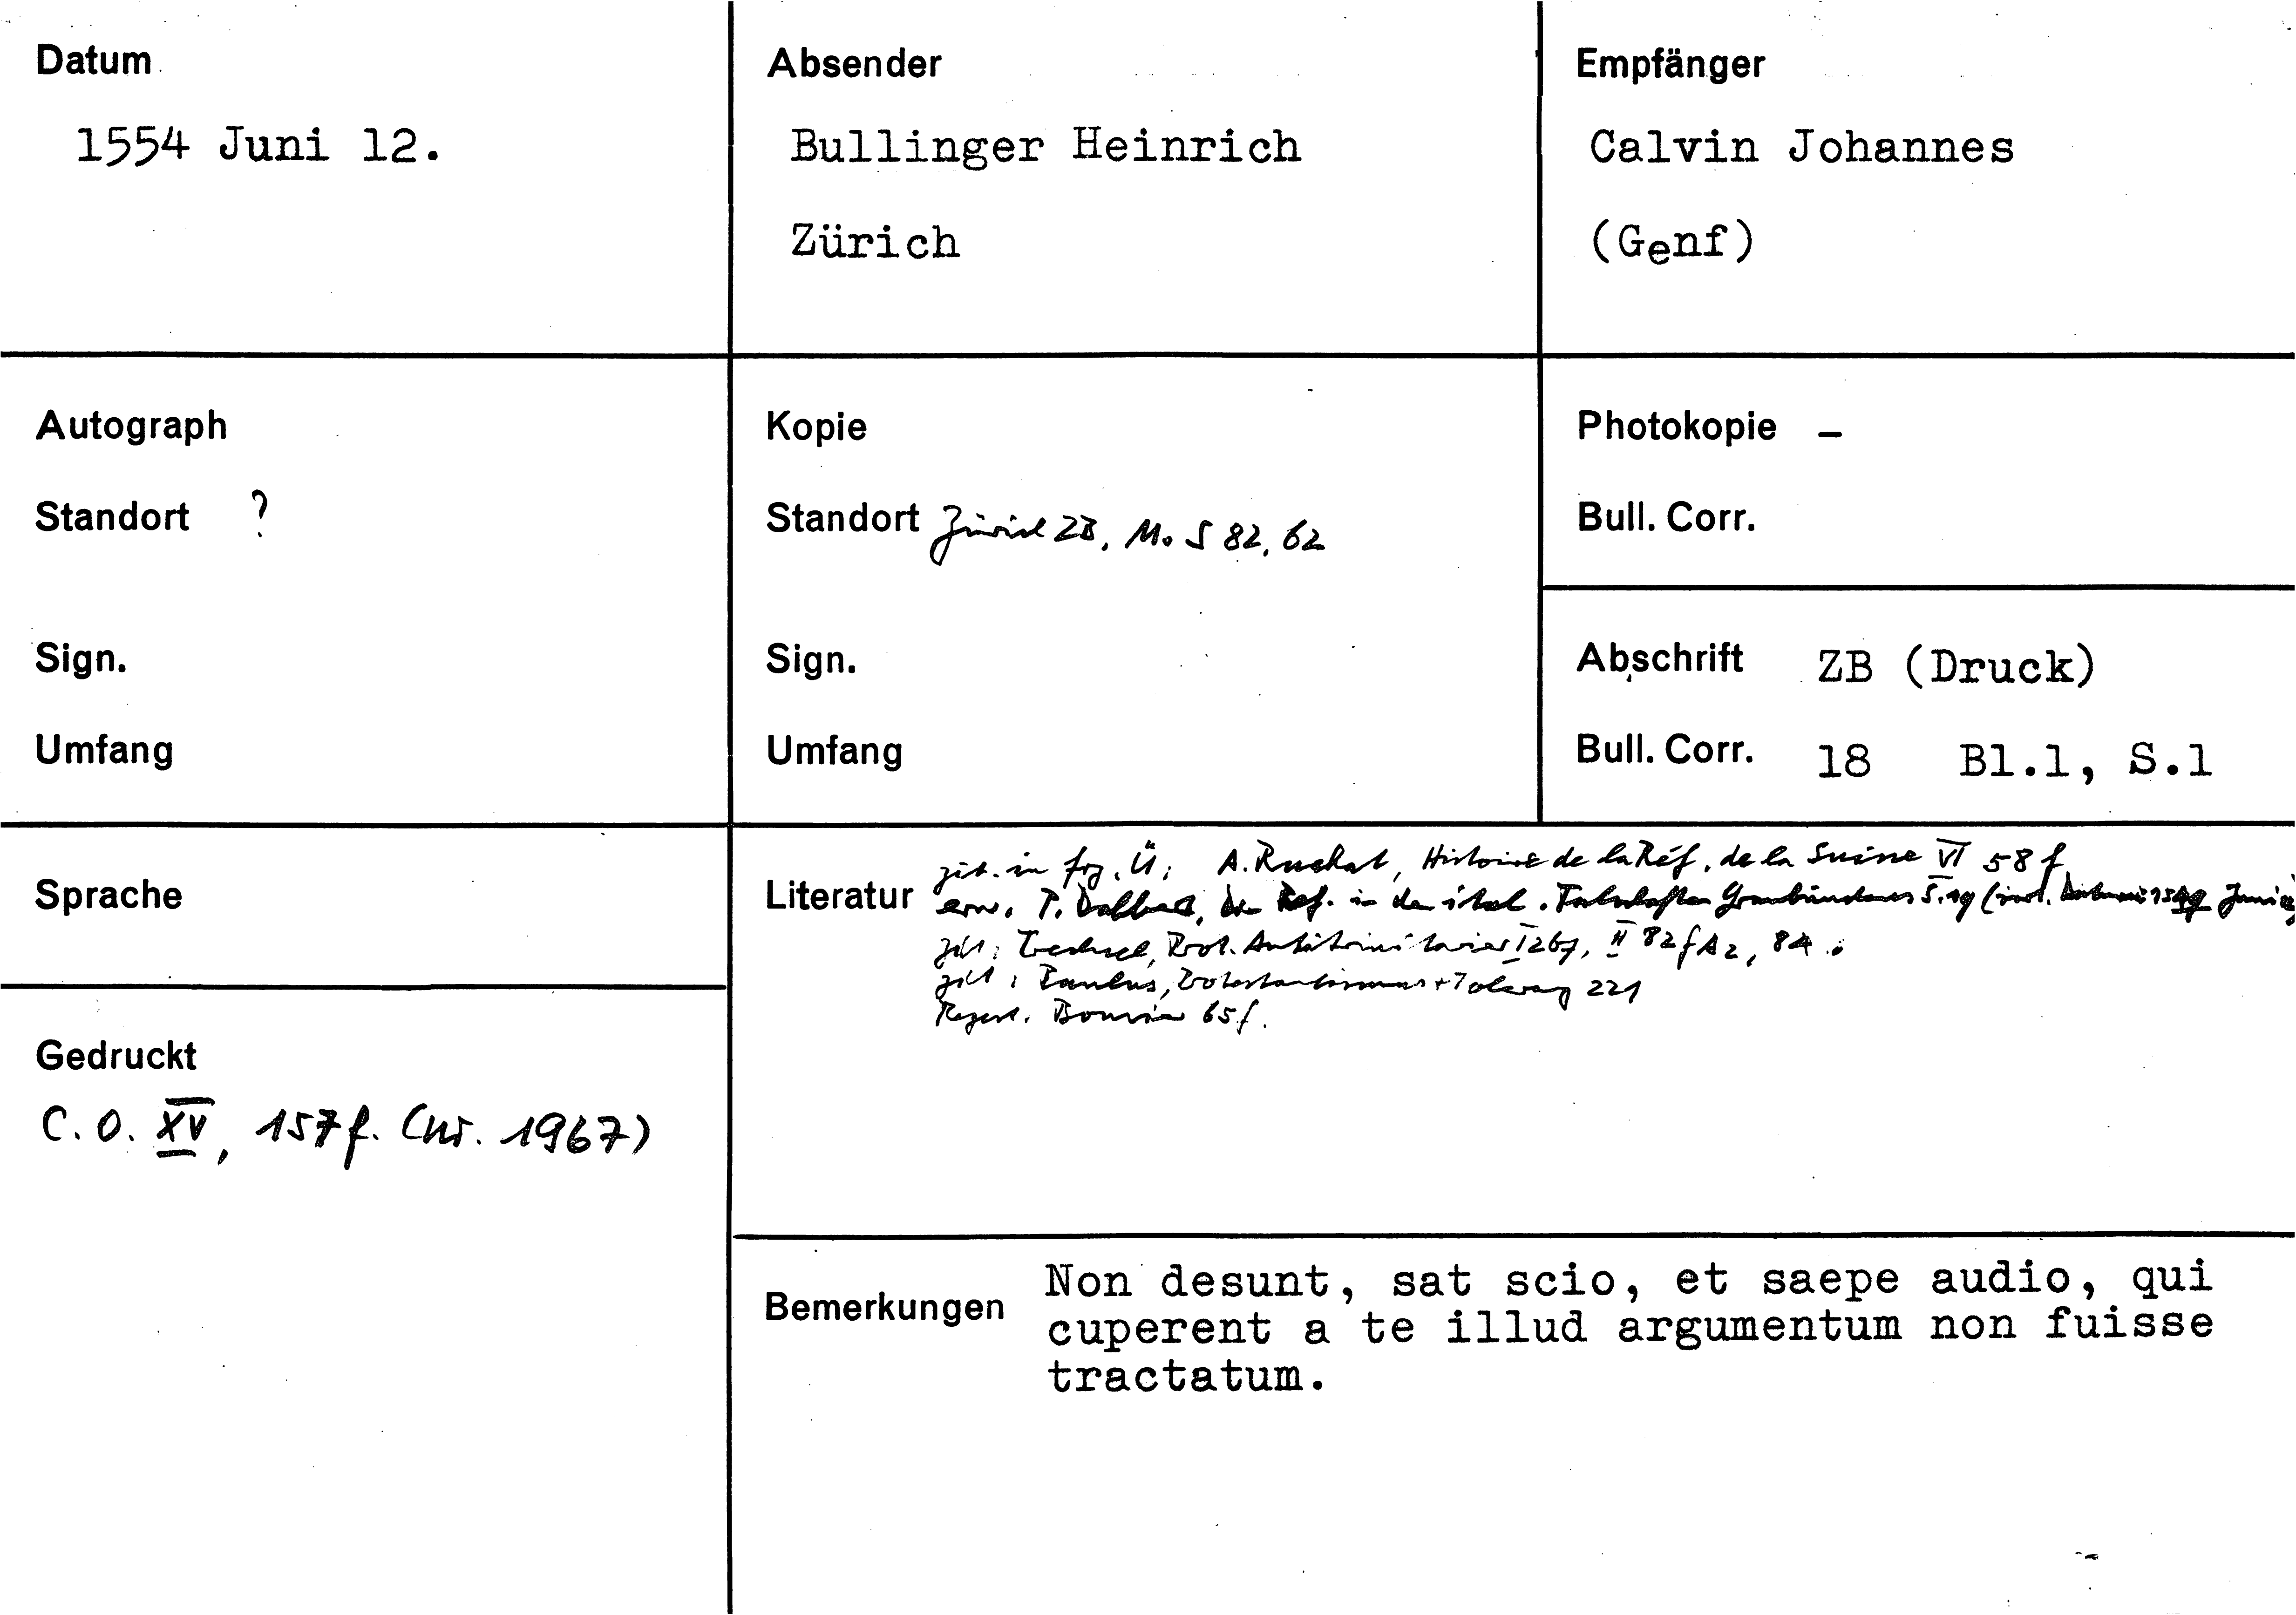 Datum
1554 Juni 12.
Absender
Bullinger Heinrich
Zürich
Empfänger
Calvin Johannes
(Genf)
Autograph
Standort ?
Sign.
Umfang
Kopie
Standort Zürich ZB, Ms S 82, 62
Sign.
Umfang
Photokopie –
Bull. Corr.
Abschrift ZB (Druck)
Bull. Corr. 18 Bl.1, S.1
Sprache
Gedruckt
C. O. XV, 157 f. (Nr. 1967)
Literatur
zit. in frz. Ü: A. Ruchat, Histoire de la Réf. de la Suisse VI 58 f
erw. P. Dalbert, die Ref. in den ital. Talschaften Graubündens S. 19 (
zit: Trechsel, Prot. Antitrinitarier I 267, II 82 f A 2, 84
zit: Paulus, Protestantismus + Toleranz 221
Regest. Bouvier 65 f.
Bemerkungen
Non desunt, sat scio, et saepe audio, qui
cuperent a te illud argumentum non fuisse
tractatum.